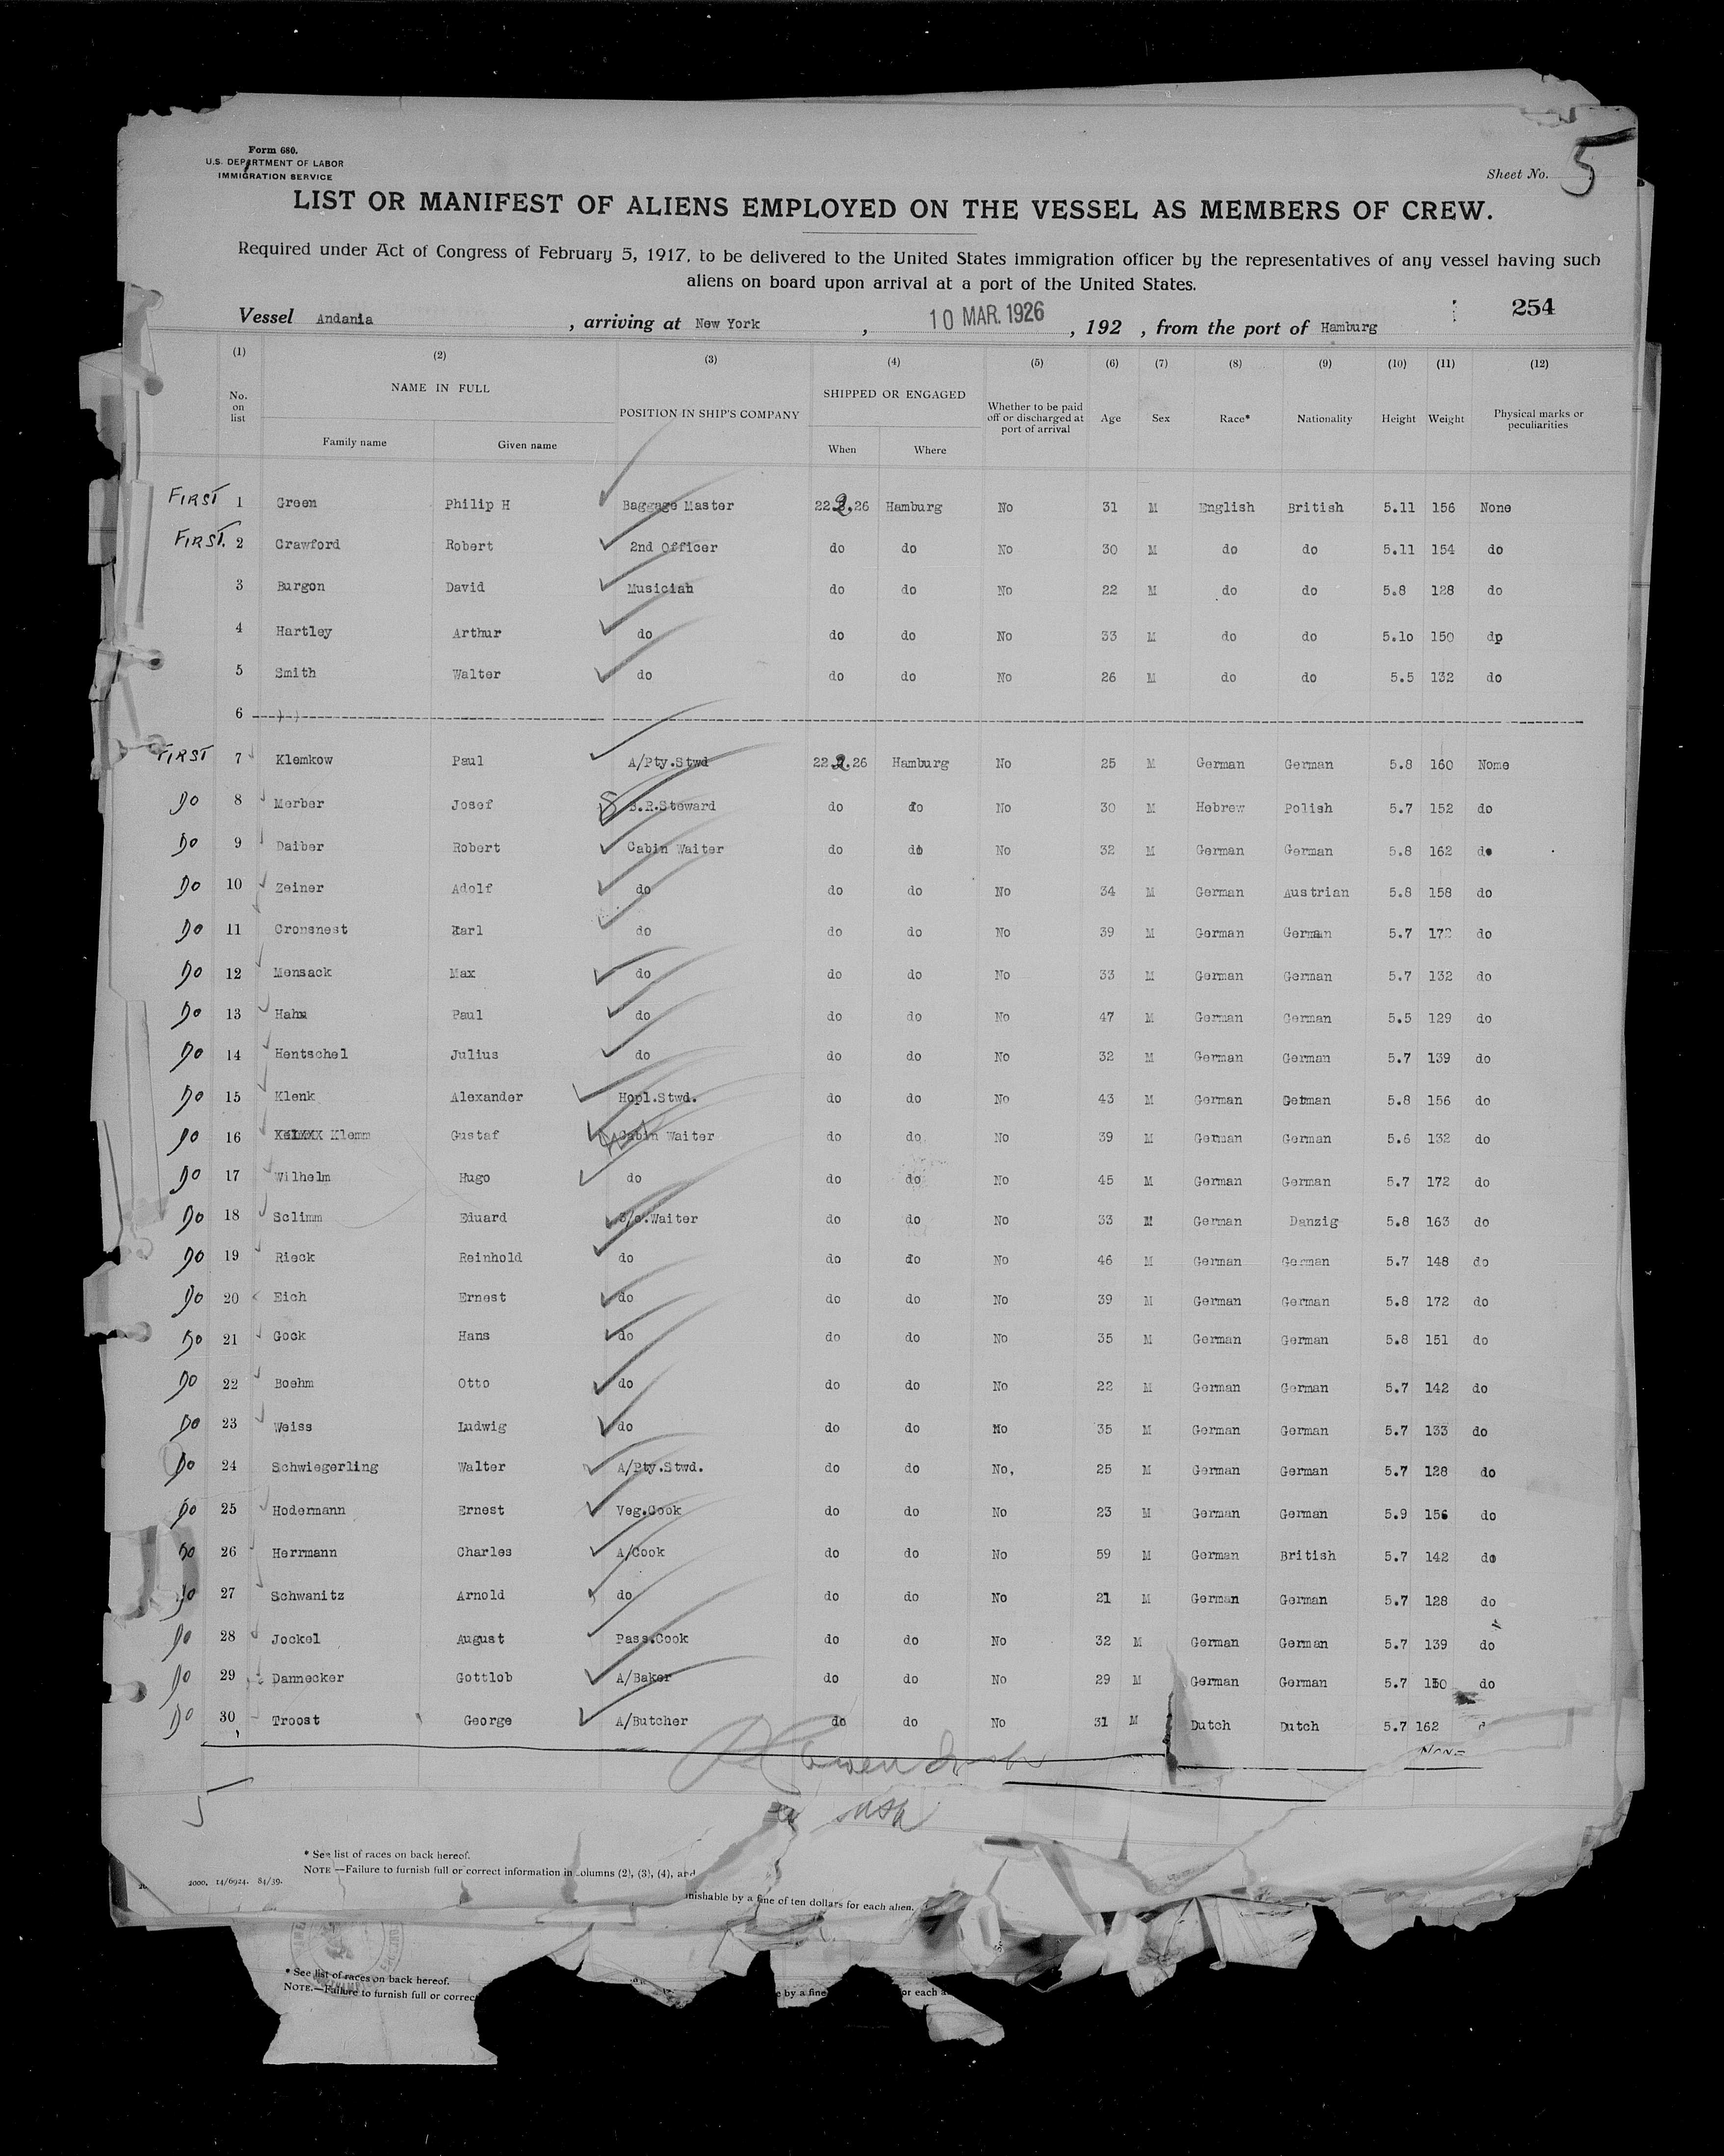 Form 680.
U.S. DEPARTMENT OF LABOR
IMMIGRATION SERVICE
Sheet No. 5
LIST OR MANIFEST OF ALIENS EMPLOYED ON THE VESSEL AS MEMBERS OF CREW.
Required under Act of Congress of February 5, 1917, to be delivered to the United States immigration officer by the representatives of any vessel having such
aliens on board upon arrival at a port of the United States.
254
Vessel Andania, arriving at New York, 10 MAR. 1926, 192 , from the port of Hamburg
(1) (2) (3) (4) (5) (6) (7) (8) (9) (10) (11) (12)
No. on list NAME IN FULL POSITION IN SHIP'S COMPANY SHIPPED OR ENGAGED Whether to be paid off or discharged at port of arrival Age Sex Race* Nationality Height Weight Physical marks or peculiarities
Family name Given name When Where
FIRST 1 Green Philip H Baggage Master 22.2.26 Hamburg No 31 M English British 5.11 156 None
FIRST. 2 Crawford Robert 2nd Officer do do No 30 M do do 5.11 154 do
3 Burgon David Musician do do No 22 M do do 5.8 128 do
4 Hartley Arthur do do do No 33 M do do 5.10 150 dp
5 Smith Walter do do do No 26 M do do 5.5 132 do
6
FIRST 7 Klemkow Paul A/Pty.Stwd 22.2.26 Hamburg No 25 M German German 5.8 160 Nome
Do 8 Merber Josef B.R.Steward do do No 30 M Hebrew Polish 5.7 152 do
Do 9 Daiber Robert Cabin Waiter do do No 32 M German German 5.8 162 do
Do 10 Zeiner Adolf do do do No 34 M German Austrian 5.8 158 do
Do 11 Cronsnest Karl do do do No 39 M German German 5.7 172 do
Do 12 Mensack Max do do do No 33 M German German 5.7 132 do
Do 13 Hahn Paul do do do No 47 M German German 5.5 129 do
Do 14 Hentschel Julius do do do No 32 M German German 5.7 139 do
Do 15 Klenk Alexander Hopl.Stwd. do do No 43 M German German 5.8 156 do
Do 16 Klemm Gustaf Cabin Waiter do do No 39 M German German 5.6 132 do
Do 17 Wilhelm Hugo do do do No 45 M German German 5.7 172 do
Do 18 Sclimm Eduard S/c.Waiter do do No 33 M German Danzig 5.8 163 do
Do 19 Rieck Reinhold do do do No 46 M German German 5.7 148 do
Do 20 Eich Ernest do do do No 39 M German German 5.8 172 do
Do 21 Gock Hans do do do No 35 M German German 5.8 151 do
Do 22 Boehm Otto do do do No 22 M German German 5.7 142 do
Do 23 Weiss Ludwig do do do No 35 M German German 5.7 133 do
Do 24 Schwiegerling Walter A/Pty.Stwd. do do No, 25 M German German 5.7 128 do
Do 25 Hodermann Ernest Veg.Cook do do No 23 M German German 5.9 156 do
Do 26 Herrmann Charles A/Cook do do No 59 M German British 5.7 142 do
Do 27 Schwanitz Arnold do do do No 21 M German German 5.7 128 do
Do 28 Jockel August Pass.Cook do do No 32 M German German 5.7 139 do
Do 29 Dannecker Gottlob A/Baker do do No 29 M German German 5.7 do
Do 30 Troost George A/Butcher do do No 31 M Dutch Dutch 5.7 162
NONE
5
* See list of races on back hereof.
NOTE—Failure to furnish full or correct information in columns (2), (3), (4), and
2000. 14/6924. 84/39.
nishable by a fine of ten dollars for each alien.
* See list of races on back hereof.
NOTE.—Failure to furnish full or correc
e by a fine or each a